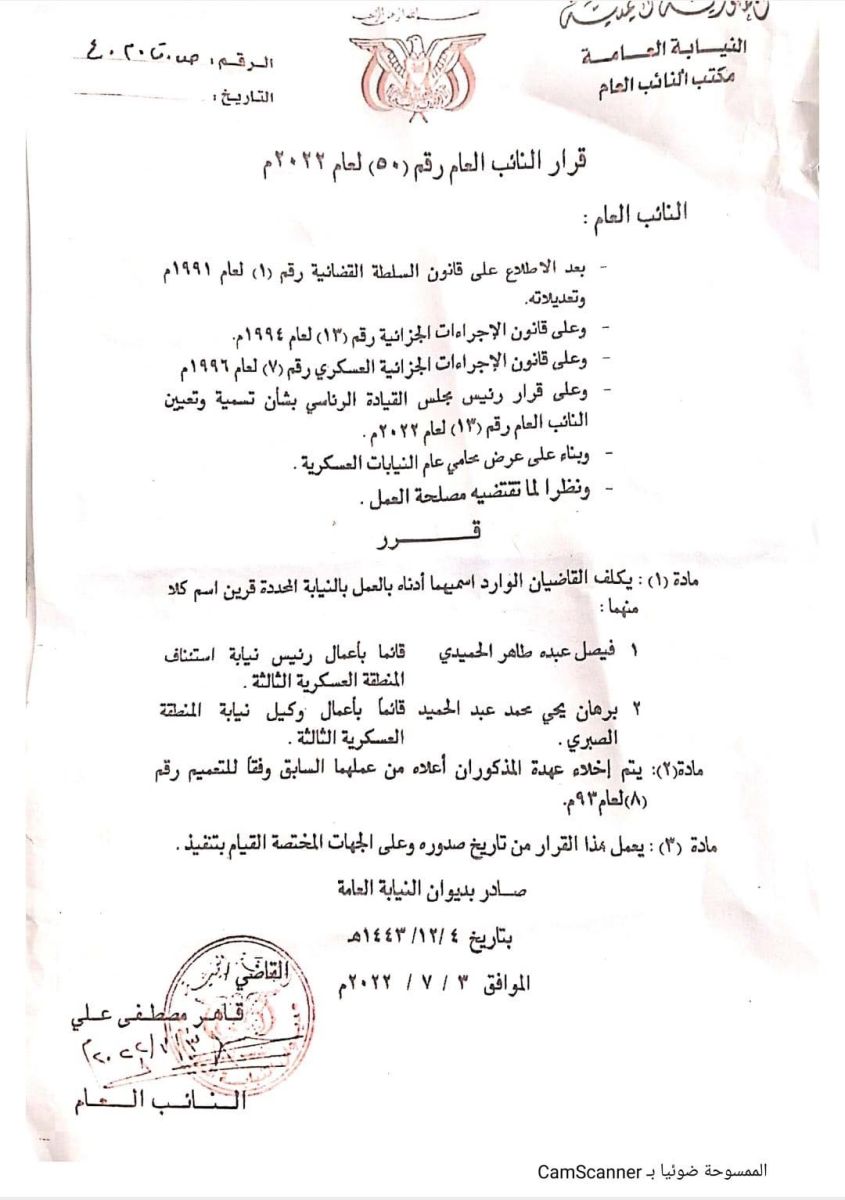 النيابة العامة
مكتب النائب العام
الرقم :
التاريخ :
قرار النائب العام رقم (٥٠) لعام ٢٠٢٢م
النائب العام :
- بعد الاطلاع على قانون السلطة القضائية رقم (١) لعام ١٩٩١م
وتعديلاته.
- وعلى قانون الإجراءات الجزائية رقم (١٣) لعام ١٩٩٤م.
- وعلى قانون الإجراءات الجزائية العسكري رقم (٧) لعام ١٩٩٦م
- وعلى قرار رئيس مجلس القيادة الرئاسي بشأن تسمية وتعيين
النائب العام رقم (١٣) لعام ٢٠٢٢م .
- وبناء على عرض محامي عام النيابات العسكرية .
- ونظرا لما تقتضيه مصلحة العمل .
قــــرر
مادة (١) : يكلف القاضيان الوارد اسميهما أدناه بالعمل بالنيابة المحددة قرين اسم كلا
منهما :
١ فيصل عبده طاهر الحميدي قائما بأعمال رئيس نيابة استئناف
المنطقة العسكرية الثالثة .
٢ برهان يحي محمد عبد الحميد قائماً بأعمال وكيل نيابة المنطقة
الصبري . العسكرية الثالثة .
مادة(٢): يتم إخلاء عهدة المذكوران أعلاه من عملهما السابق وفقاً للتعميم رقم
(٨)لعام٩٣م.
مادة (٣) : يعمل بهذا القرار من تاريخ صدوره وعلى الجهات المختصة القيام بتنفيذ .
صادر بديوان النيابة العامة
بتاريخ ٤ /١٢ /١٤٤٣هـ
الموافق ٣ / ٧ / ٢٠٢٢م
القاضي /
قاهر مصطفى علي
النائب العام
الممسوحة ضوئيا بـ CamScanner